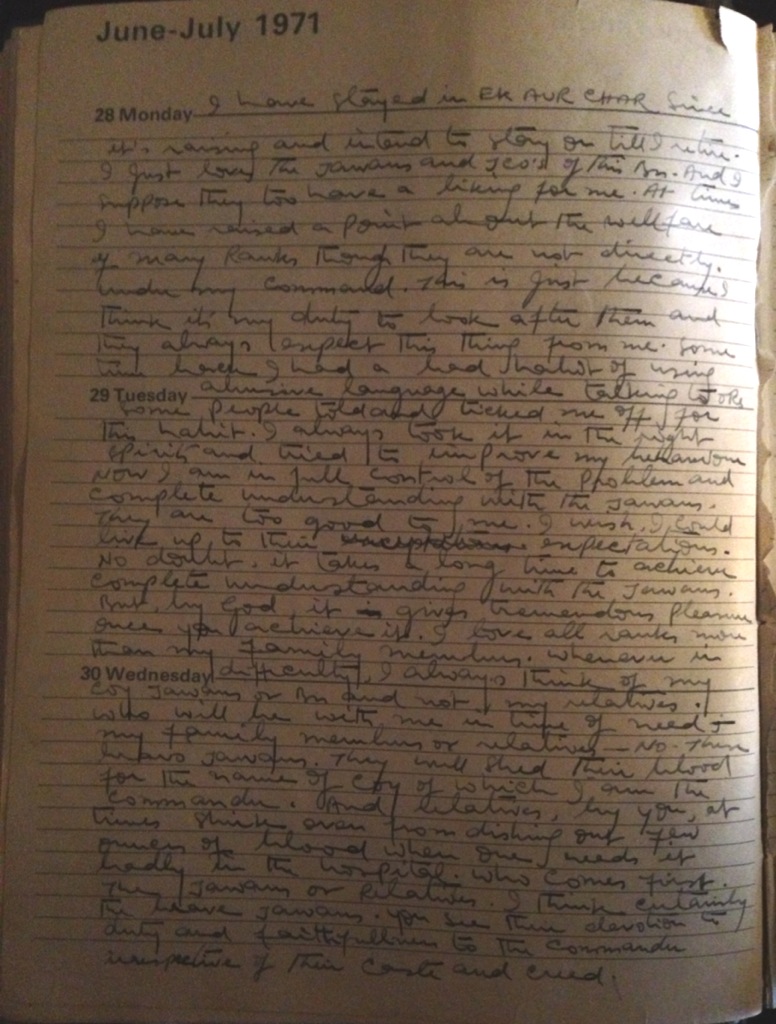 June-July 1971
28 Monday I have stayed in EK AUR CHAR since
it's raising and intend to stay on till I retire.
I just love the Jawans and JCO's of this Bn. And I
suppose they too have a liking for me. At times
I have raised a point about the wellfare
of many Ranks though they are not directly
under my command. This is just because I
think it's my duty to look after them and
they always expect this thing from me. Some
time back I had a bad habit of using
29 Tuesday abusive language while talking to ORs
some people told and ticked me off for
this habit. I always took it in the right
spirit and tried to improve my behaviour
Now I am in full control of the problem and
complete understanding with the Jawans.
They are too good to me. I wish, I could
live up to their expectations.
No doubt, it takes a long time to achieve
complete understanding with the Jawans.
But, by God, it gives tremendous pleasure
once you achieve it. I love all ranks more
than my family members. Whenever in
30 Wednesday difficulty, I always think of my
Coy Jawans or Bn and not my relatives.
Who will be with me in time of need -
my family members or relatives — NO. These
bravo Jawans. They will shed their blood
for the name of Coy of which I am the
Commander. And relatives, by you, at
times shrink even from dishing out few
ounces of blood when one needs it
badly in the hospital. Who comes first.
They Jawans or Relatives. I think certainly
the brave Jawans. You see their devotion to
duty and faithfullness to the Commander
irrespective of their caste and creed.